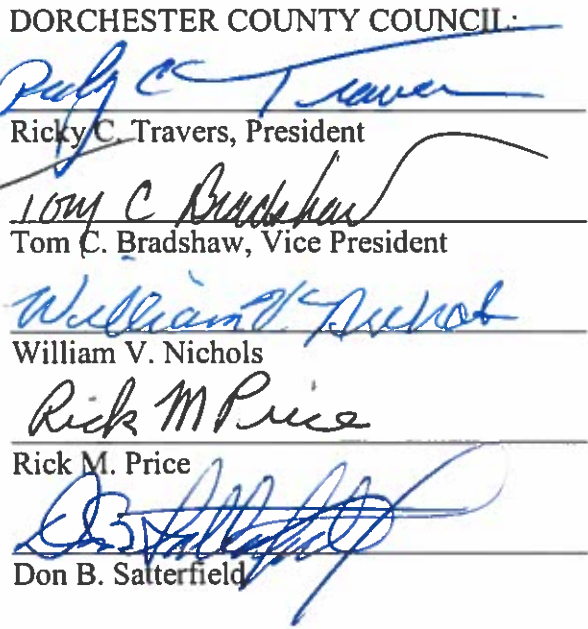 DORCHESTER COUNTY COUNCIL:
Ricky C Travers
Ricky C. Travers, President
Tom C Bradshaw
Tom C. Bradshaw, Vice President
William V. Nichols
William V. Nichols
Rick M Price
Rick M. Price
Don B Satterfield
Don B. Satterfield